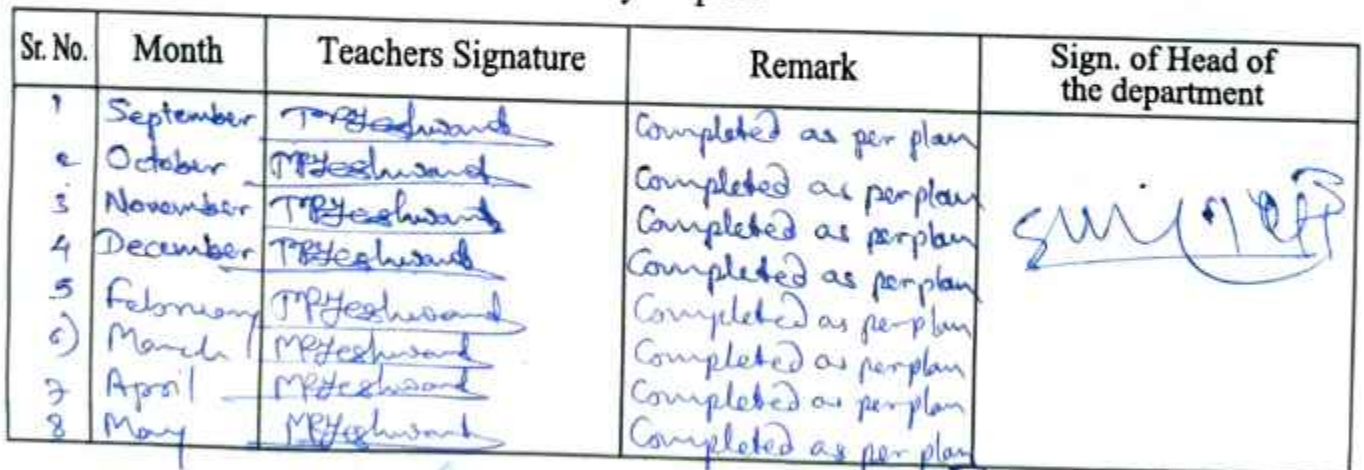 Sr. No. Month Teachers Signature Remark Sign. of Head of the department
1 September MPYeshwant Completed as per plan
2 October MPYeshwant Completed as per plan
3 November MPYeshwant Completed as per plan
4 December MPYeshwant Completed as per plan
5 February MPYeshwant Completed as per plan
6) March MPYeshwant Completed as per plan
7 April MPYeshwant Completed as per plan
8 May MPYeshwant Completed as per plan